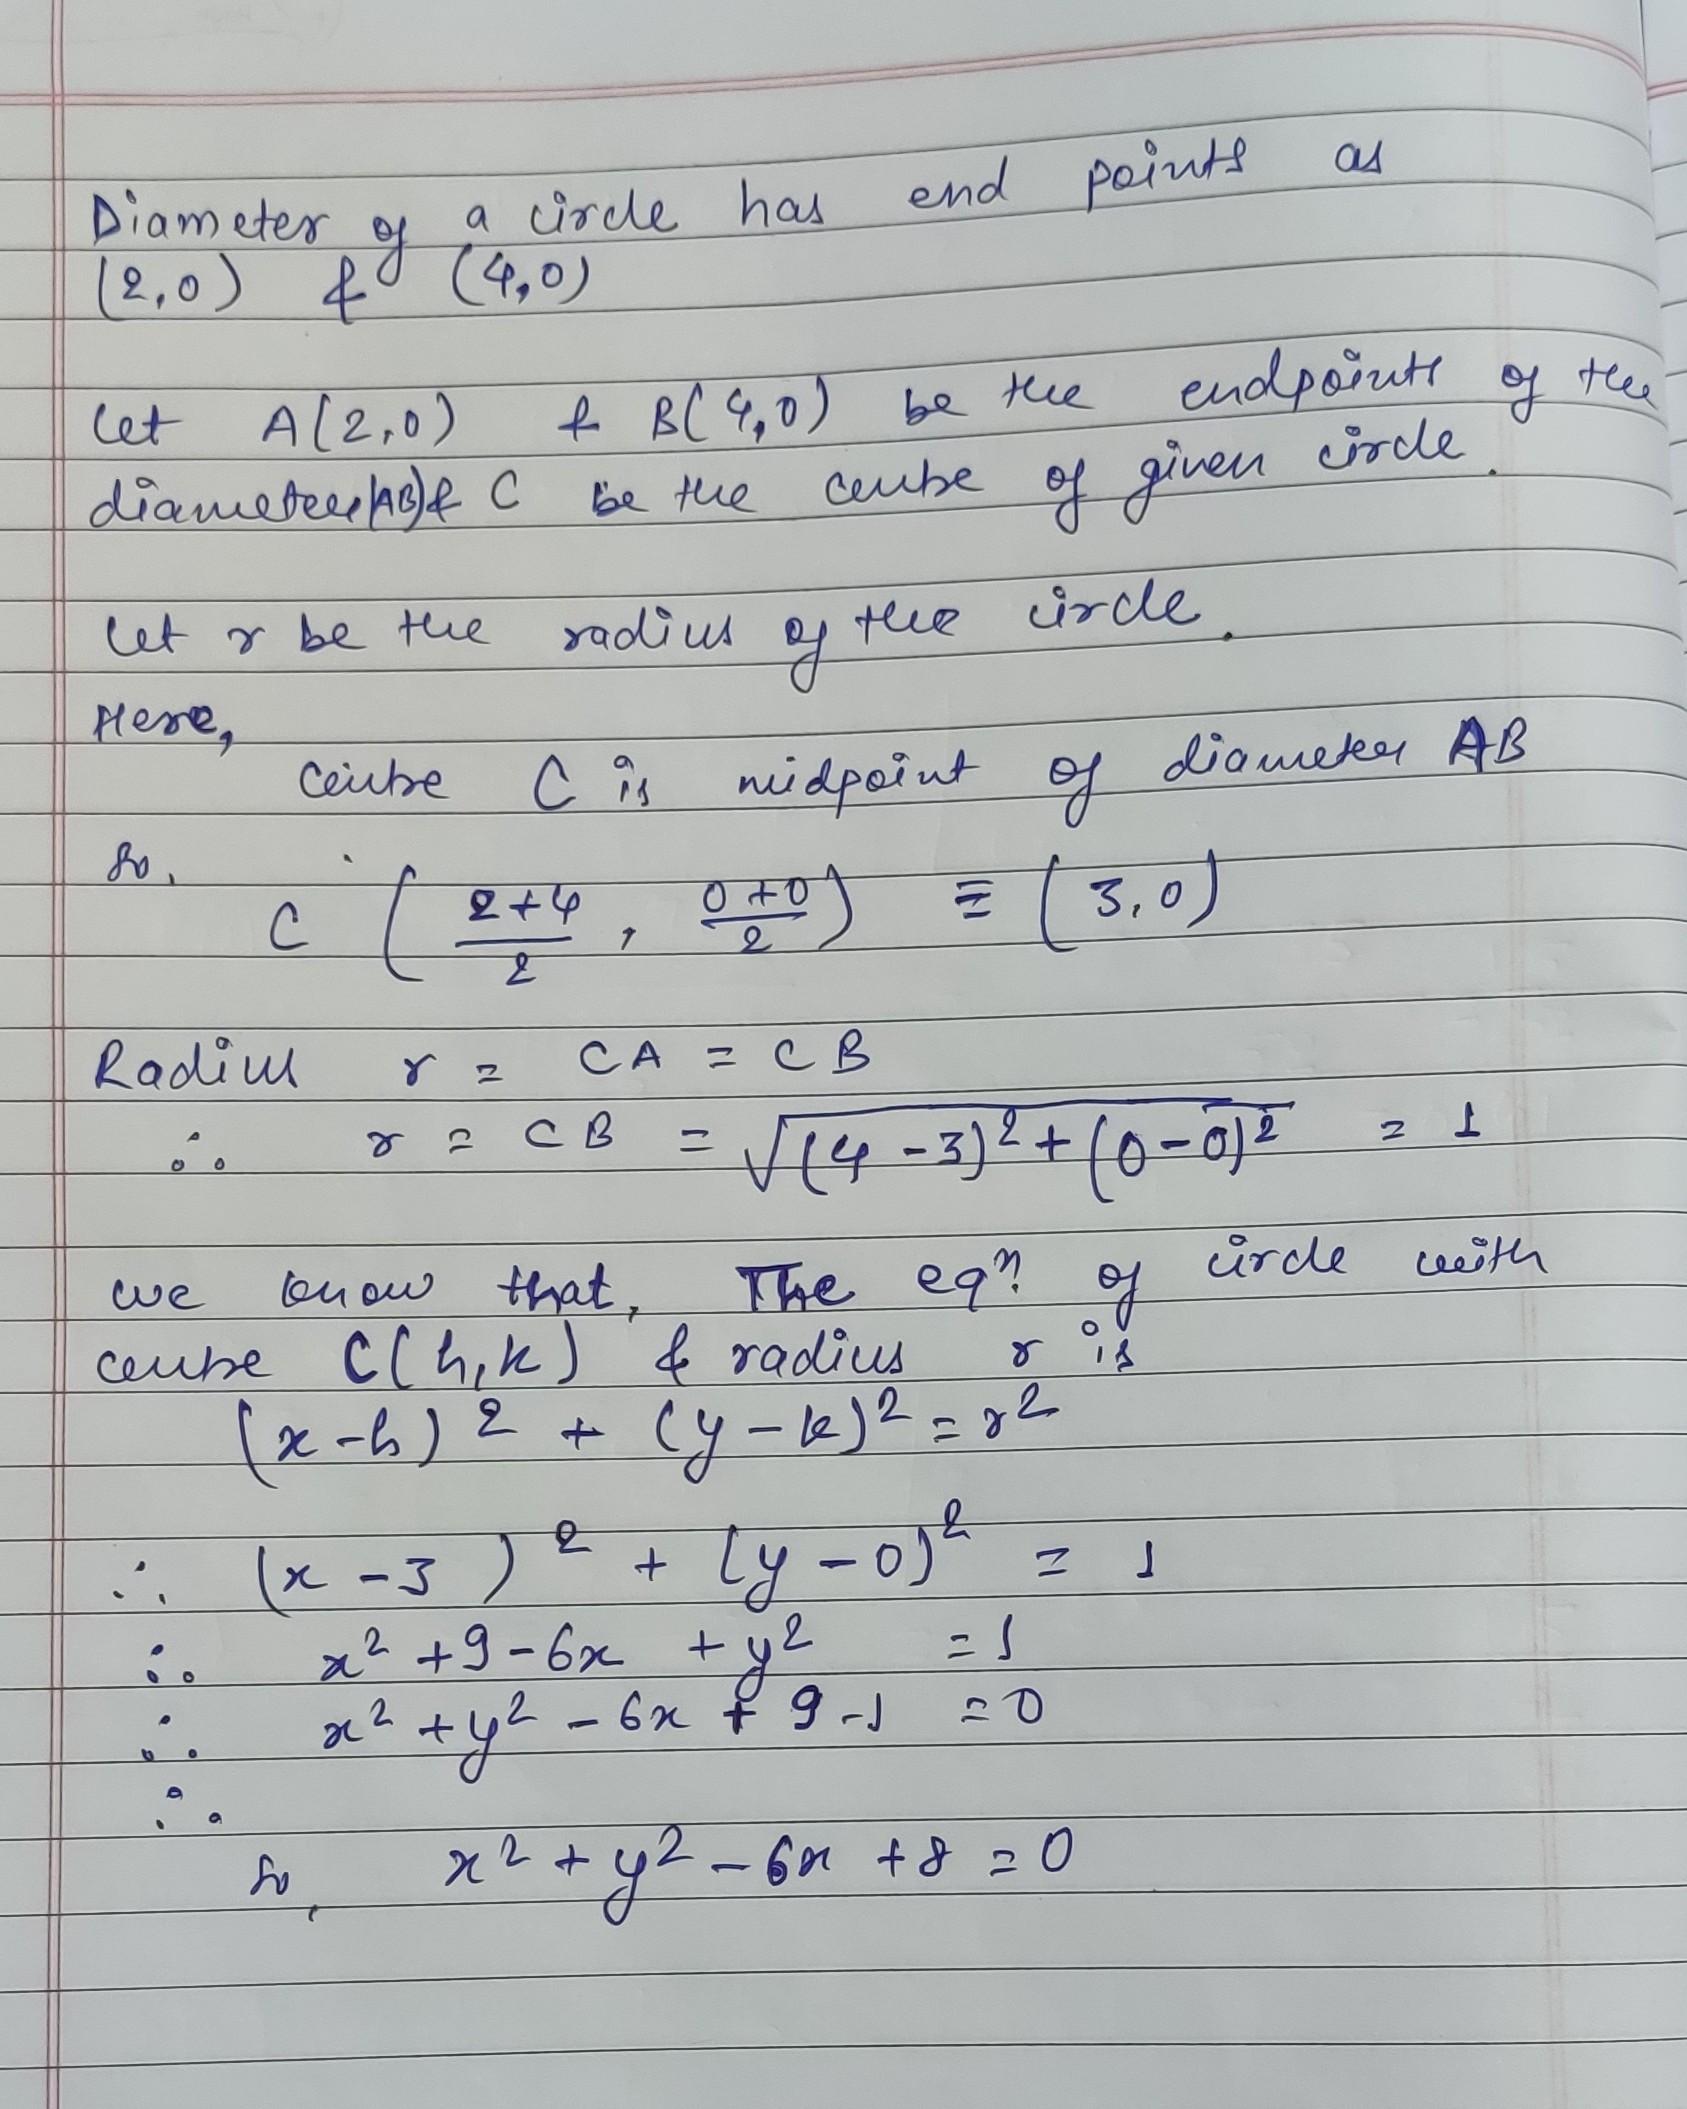 Diameter of a circle has end points as
(2,0) & (4,0)
let A(2,0) & B(4,0) be the endpoints of the
diameter(AB) & C be the centre of given circle.
let r be the radius of the circle.
Here,
centre C is midpoint of diameter AB
so,
C ( (2+4)/2 , (0+0)/2 ) ≡ (3,0)
Radius r = CA = CB
∴ r = CB = √((4-3)² + (0-0)²) = 1
we know that, The eqⁿ. of circle with
centre C(h,k) & radius r is
(x-h)² + (y-k)² = r²
∴ (x-3)² + (y-0)² = 1
∴ x² + 9 - 6x + y² = 1
∴ x² + y² - 6x + 9 - 1 = 0
∴
so, x² + y² - 6x + 8 = 0